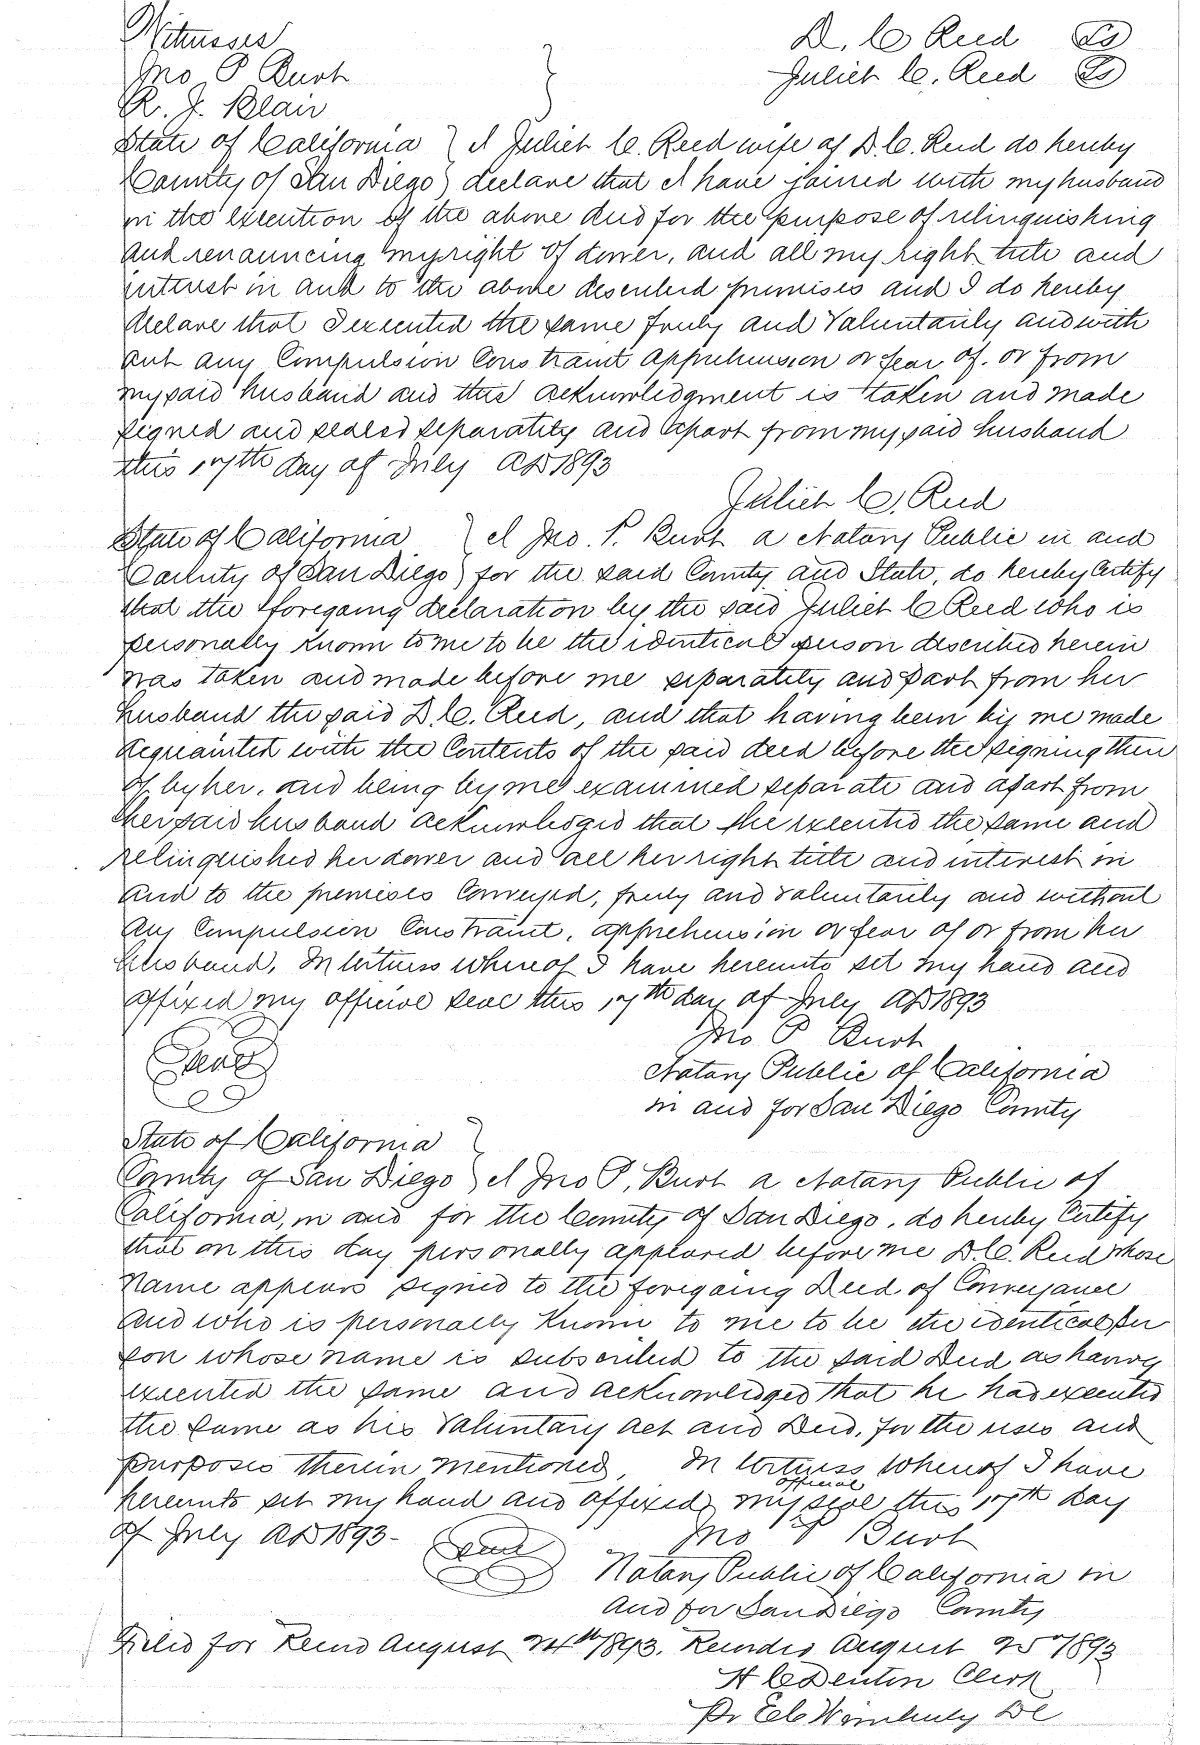 Witnesses D. C Reed Ls
Jno P Burt Juliet C. Reed Ls
R. J. Blair
State of California } I Juliet C. Reed wife of D. C. Reed do hereby
County of San Diego } declare that I have joined with my husband
in the execution of the above and for the purpose of relinquishing
and renouncing my right of dower, and all my right title and
interest in and to the above described premises and I do hereby
declare that I executed the same freely and voluntarily and with
out any Compulsion Constraint apprehension or fear of. or from
my said husband and this acknowledgment is taken and made
signed and sealed separately and apart from my said husband
this 17th day of July AD 1893
Juliet C. Reed
State of California } I Jno. P. Burt a Notary Public in and
County of San Diego } for the said County and State, do hereby Certify
that the foregoing declaration by the said Juliet C Reed who is
personally known to me to be the identical person described herein
was taken and made before me separately and part from her
husband the said D. C. Reed, and that having been by me made
acquainted with the Contents of the said deed before the signing there
of by her. and being by me examined separate and apart from
her said husband acknowledged that she executed the same and
relinquished her dower and all her right title and interest in
and to the premises Conveyed, freely and voluntarily and without
any Compulsion Constraint. apprehension or fear of or from her
husband. In witness whereof I have hereunto set my hand and
affixed my official seal this 17th day of July AD 1893
Jno P Burt
Seal Notary Public of California
in and for San Diego County
State of California }
County of San Diego } I Jno P. Burt a Notary Public of
California, in and for the County of San Diego. do hereby Certify
that on this day personally appeared before me D. C. Reed whose
name appears signed to the foregoing Deed of Conveyance
and who is personally Known to me to be the identical per
son whose name is subscribed to the said Deed as having
executed the same and acknowledged that he had executed
the same as his Voluntary act and Deed, for the uses and
purposes therein mentioned, In witness Whereof I have
hereunto set my hand and affixed my official seal this 17th day
of July AD 1893- Seal Jno P Burt
Notary Public of California in
and for San Diego County
Filed for Record August 24th 1893. Recorded August 25 1893
H C Denton Clerk
Pr E C Wimberly DC